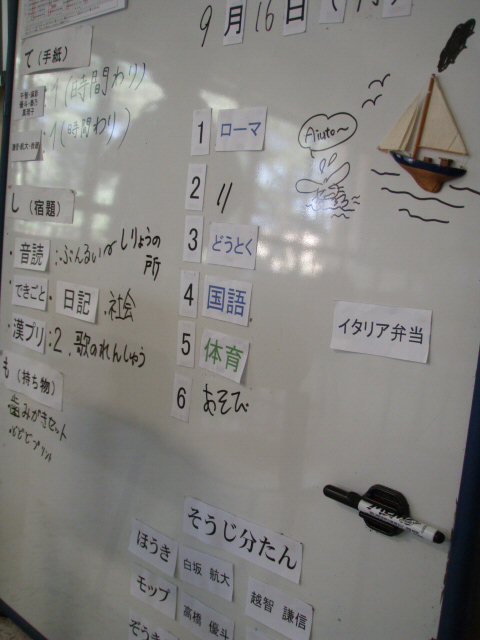 9月16日
て（手紙）
1（時間わり）
1（時間わり）
し（宿題）
・音読：ぶんるい
しりょうの
所
・できごと・日記・社会
・漢プリ：2、歌のれんしゅう
も（持ち物）
歯みがきセット
1 ローマ
2 〃
3 どうとく
4 国語
5 体育
6 あそび
Aiuto~
イタリア弁当
そうじ分たん
ほうき 白坂 航大
モップ 高橋 優斗
越智 謙信